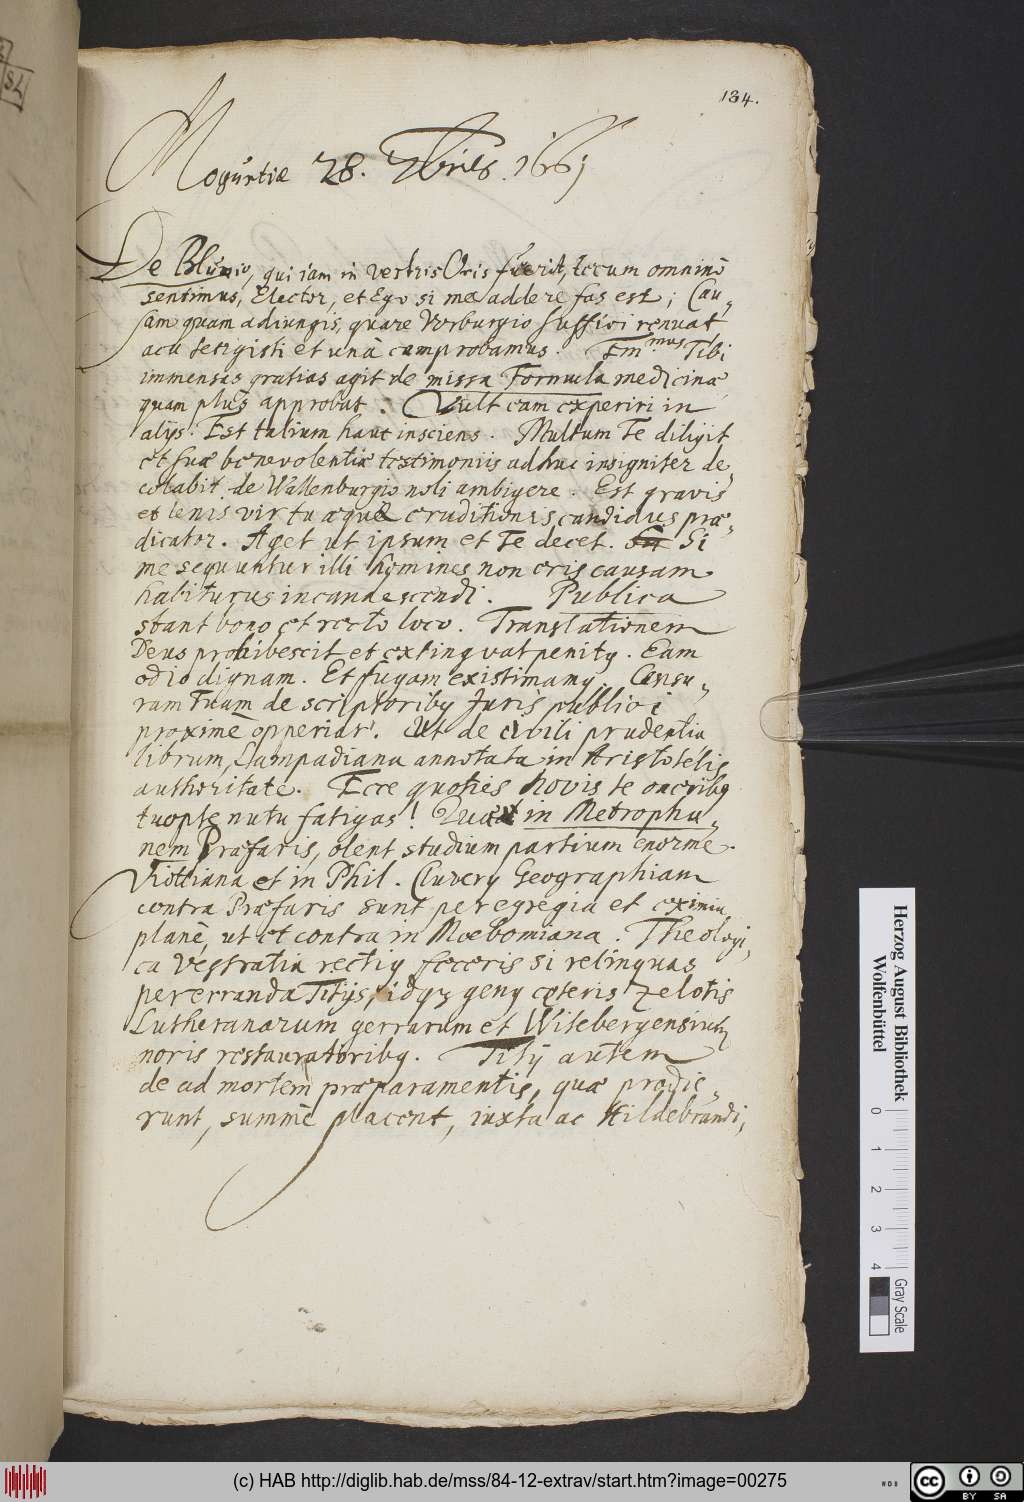 134.
Moguntiæ 28. 7briᵉˢ. 1661
De Blumio, qui iam in vestris Oris fuerit, tecum omninò
sentimus, Elector, et Ego si me addere fas est; Cau-
sam quam adiungis, quare Vorburgio suffici renuat
acu tetigisti et unà comprobamus. Emᵐᵘˢ Tibi
immensas gratias agit de missa Formula medicinæ
quam plus approbat. Vult eam experiri in
alijs. Est talium haut insciens. Multum Te diligit
et suæ benevolentiæ testimoniis adhuc insigniter de-
corabit. de Wallenburgio noli ambigere. Est gravis
et lenis virtu æquè eruditionis candidus præ-
dicator. Aget ut ipsum et Te decet. Si
me sequuntur illi homines non eris causam
habiturus incandescendi. Publica
stant bono et recto loco. Translationem
Deus prohibescit et extinguat penitꝰ. Eam
odio dignam. Et fugam existimamꝰ. Censu-
ram Tuam de scriptoribꝰ Juris publici
proximè opperiar. Ut de civili prudentia
librum, Lampadiana annotata in Aristotelis
authoritate. Ecce quoties novis te oneribꝰ
tuopte nutu fatigas! Quæ in Metropha-
nem Præfaris, olent studium partium enorme.
Viottiana et in Phil. Cluvery Geographiam
contra Præfaris sunt peregregia et eximia
planè, ut et contra in Moebomiana. Theologi-
ca Vestratia rectiꝰ feceris si relinquas
pererranda Titijs, idqꝫ genꝰ cęteris zelotis
Lutheranarum gerrarum et Witebergensium
noris restauratoribꝰ. Titij autem
de ad mortem præparamentis, quæ prodie-
runt, summè placent, iuxta ac Hildebrandi,
Herzog August Bibliothek
Wolfenbüttel
0 1 2 3 4
Gray Scale
(c) HAB http://diglib.hab.de/mss/84-12-extrav/start.htm?image=00275
cc BY SA